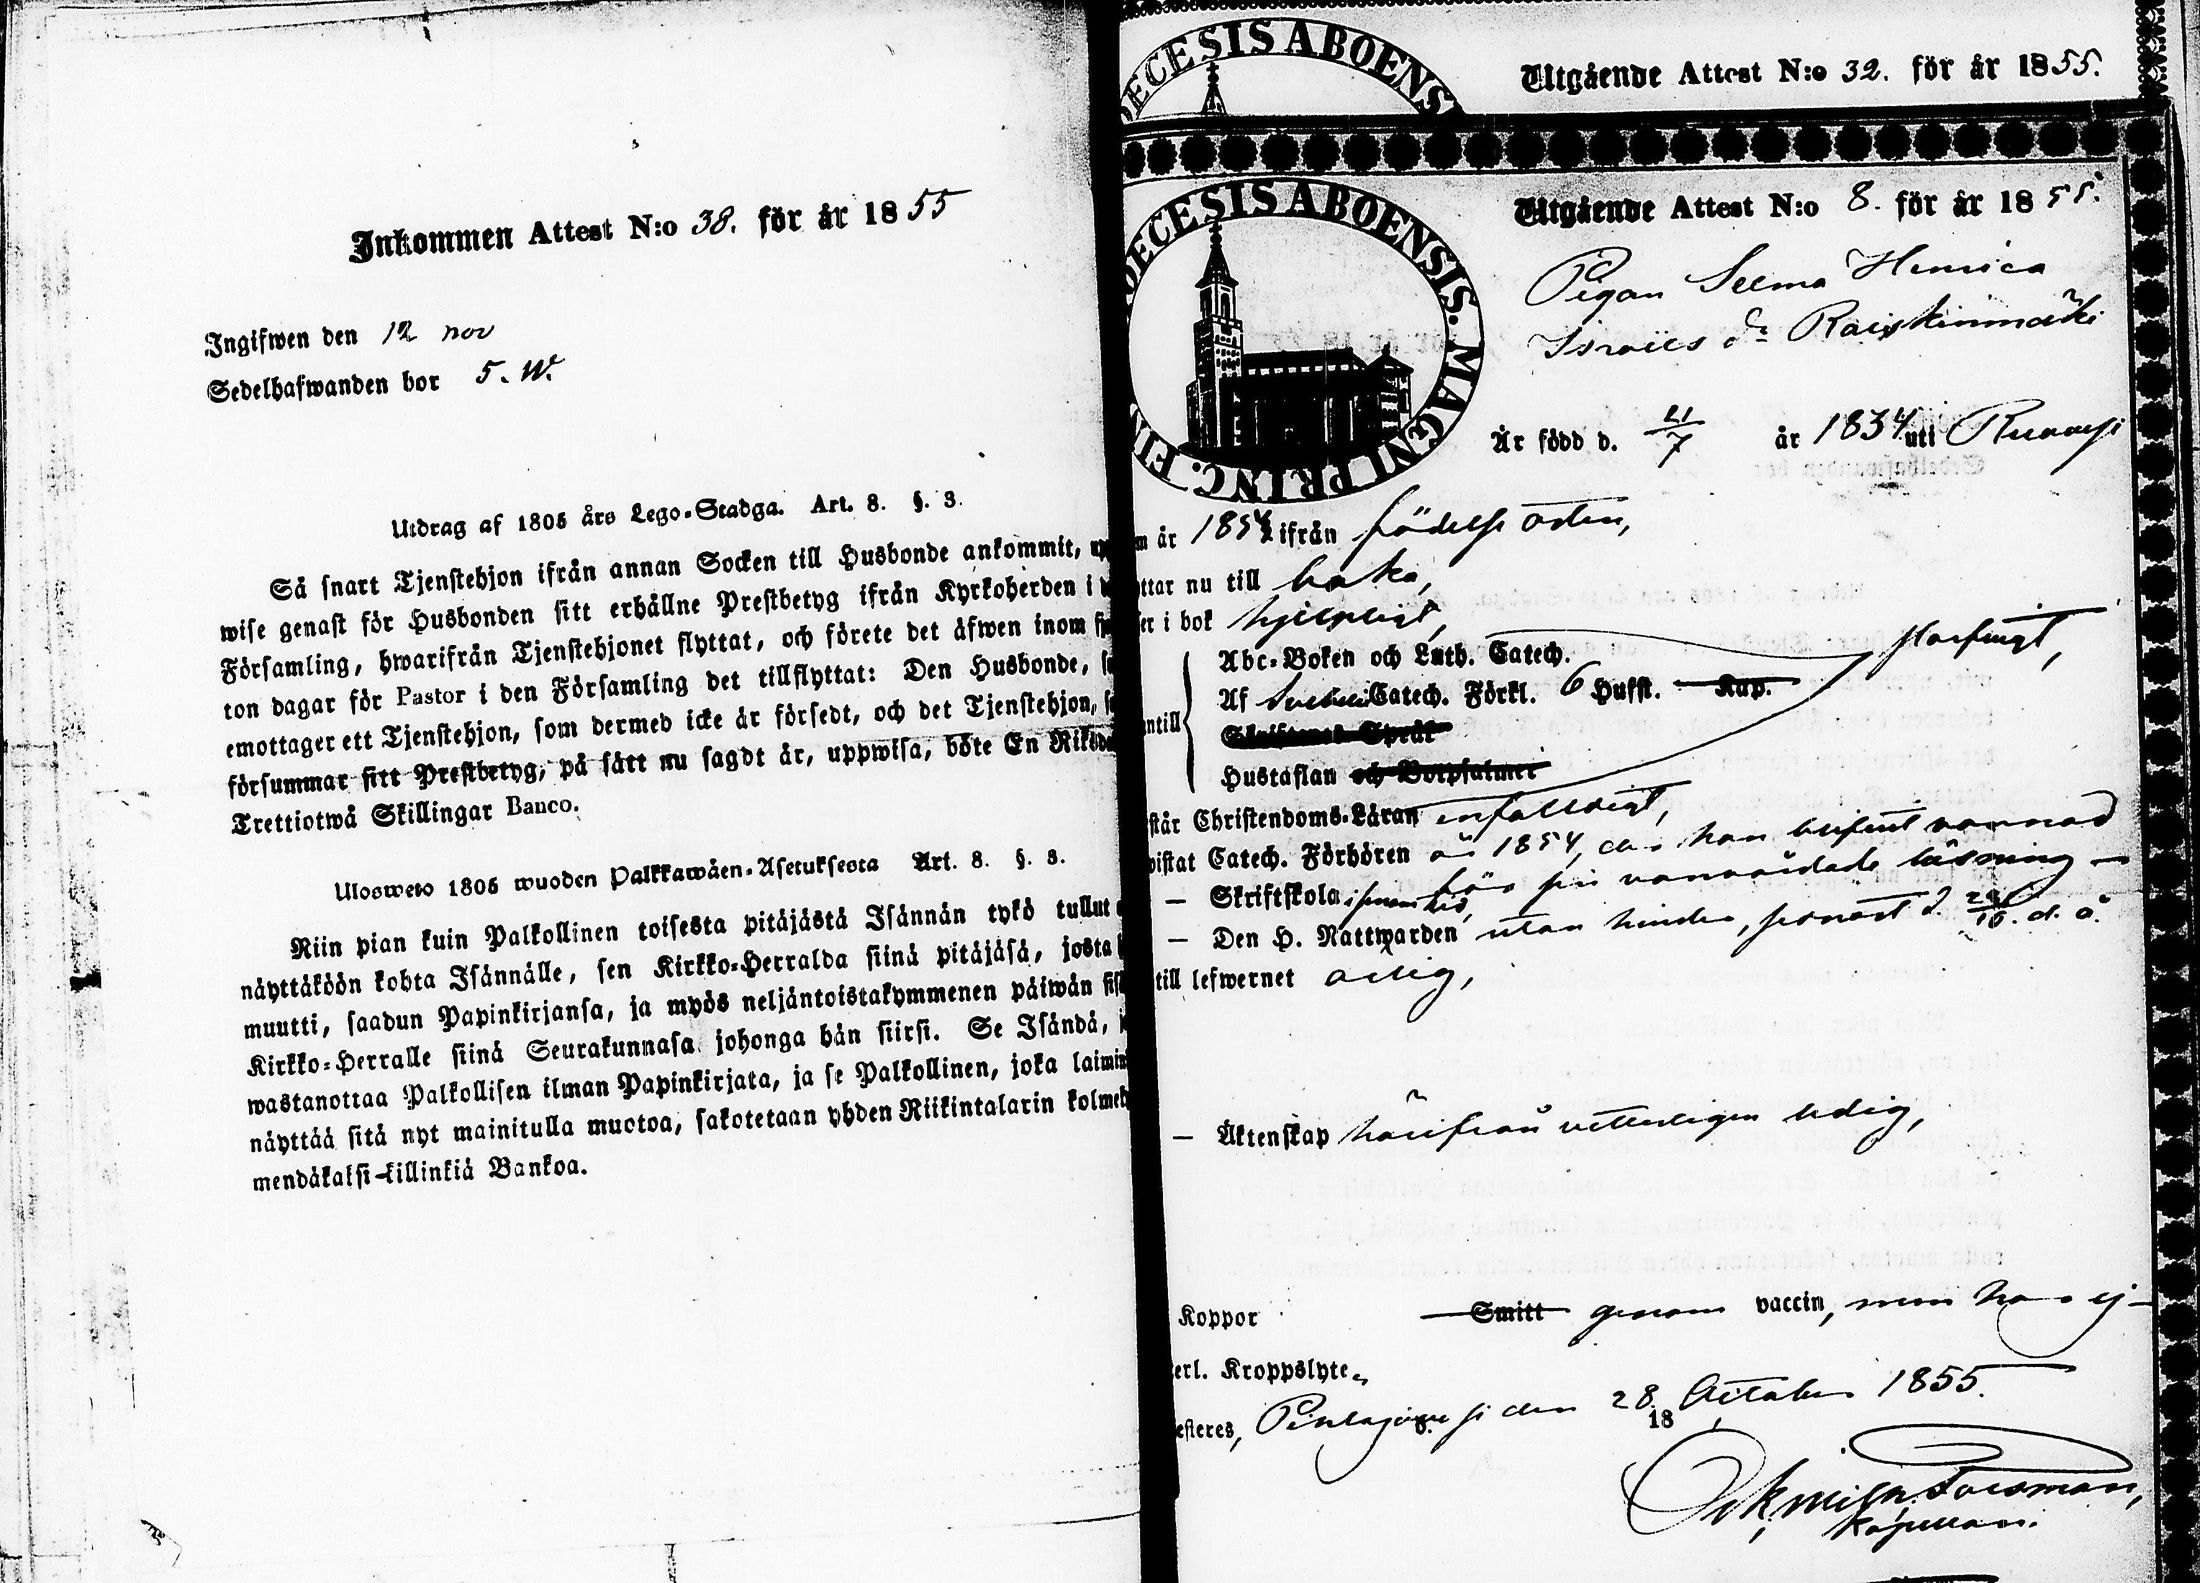 Inkommen Attest N:o 38. för år 1855
Ingifwen den 12 nov
Sedelhafwanden bor 5. W.
Utdrag af 1805 års Lego-Stadga. Art. 8. §. 3.
Så snart Tjenstehjon ifrån annan Socken till Husbonde ankommit, upp
wise genast för Husbonden sitt erhållne Prestbetyg ifrån Kyrkoherden i
Församling, hwarifrån Tjenstehjonet flyttat, och förete det äfwen inom
ton dagar för Pastor i den Församling det tillflyttat: Den Husbonde,
emottager ett Tjenstehjon, som dermed icke är försedt, och det Tjenstehjon,
försummar sitt Prestbetyg, på sätt nu sagdt är, uppwisa, böte En Riksda
Trettiotwå Skillingar Banco.
Ulosweto 1805 wuoden Palkkawäen-Asetuksesta Art. 8. §. 3.
Niin pian kuin Palkollinen toisesta pitäjästä Isännän tykö tullut
näyttäköön kohta Isännälle, sen Kirkko-Herralda siinä pitäjäsä, josta
muutti, saadun Papinkirjansa, ja myös neljäntoistakymmenen päiwän
Kirkko-Herralle siinä Seurakunnasa johonga hän siirsi. Se Isändä,
wastanottaa Palkollisen ilman Papinkirjata, ja se Palkollinen, joka laimin
näyttää sitä nyt mainitulla muotoa, sakotetaan yhden Riikintalarin kolmek
mendäkaksi-killinkiä Bankoa.
DECESIS ABOENS
Utgående Attest N:o 32. för år 1855.
DECESIS ABOENSIS. MAGNI PRINC. FIN
Utgående Attest N:o 8. för år 1855.
Pigan Selma Henrica
Israels dr Raiskinmäki
Är född d. 21/7 år 1834 uti
m år 1854 ifrån födelse orten,
ttar nu till baka,
er i bok hjelpligt,
Abc-Boken och Luth. Catech.
Af Catech. Förkl. 6 Hufst. Kap.
ntill
Skriftenes Språk
Hustaflan och Botpsalmer
står Christendoms-Läran enfaldigt,
wistat Catech. Förhören år 1854, då hon blifvit varnad
— Skriftskola för sin vanvårdade läsning
— Den H. Nattwarden utan hinder, senast d. d. å.
till lefwernet ärlig,
— Äktenskap härifrån vetterligen ledig,
Koppor Smitt genom vaccin, men har ej
erl. Kroppslyte
esteres, den 28 October 1855.
18
Forsman,
Kapellan.